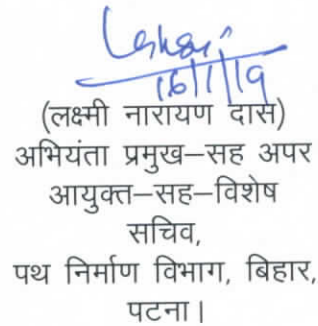 16/1/19
(लक्ष्मी नारायण दास)
अभियंता प्रमुख–सह अपर
आयुक्त–सह–विशेष
सचिव,
पथ निर्माण विभाग, बिहार,
पटना।